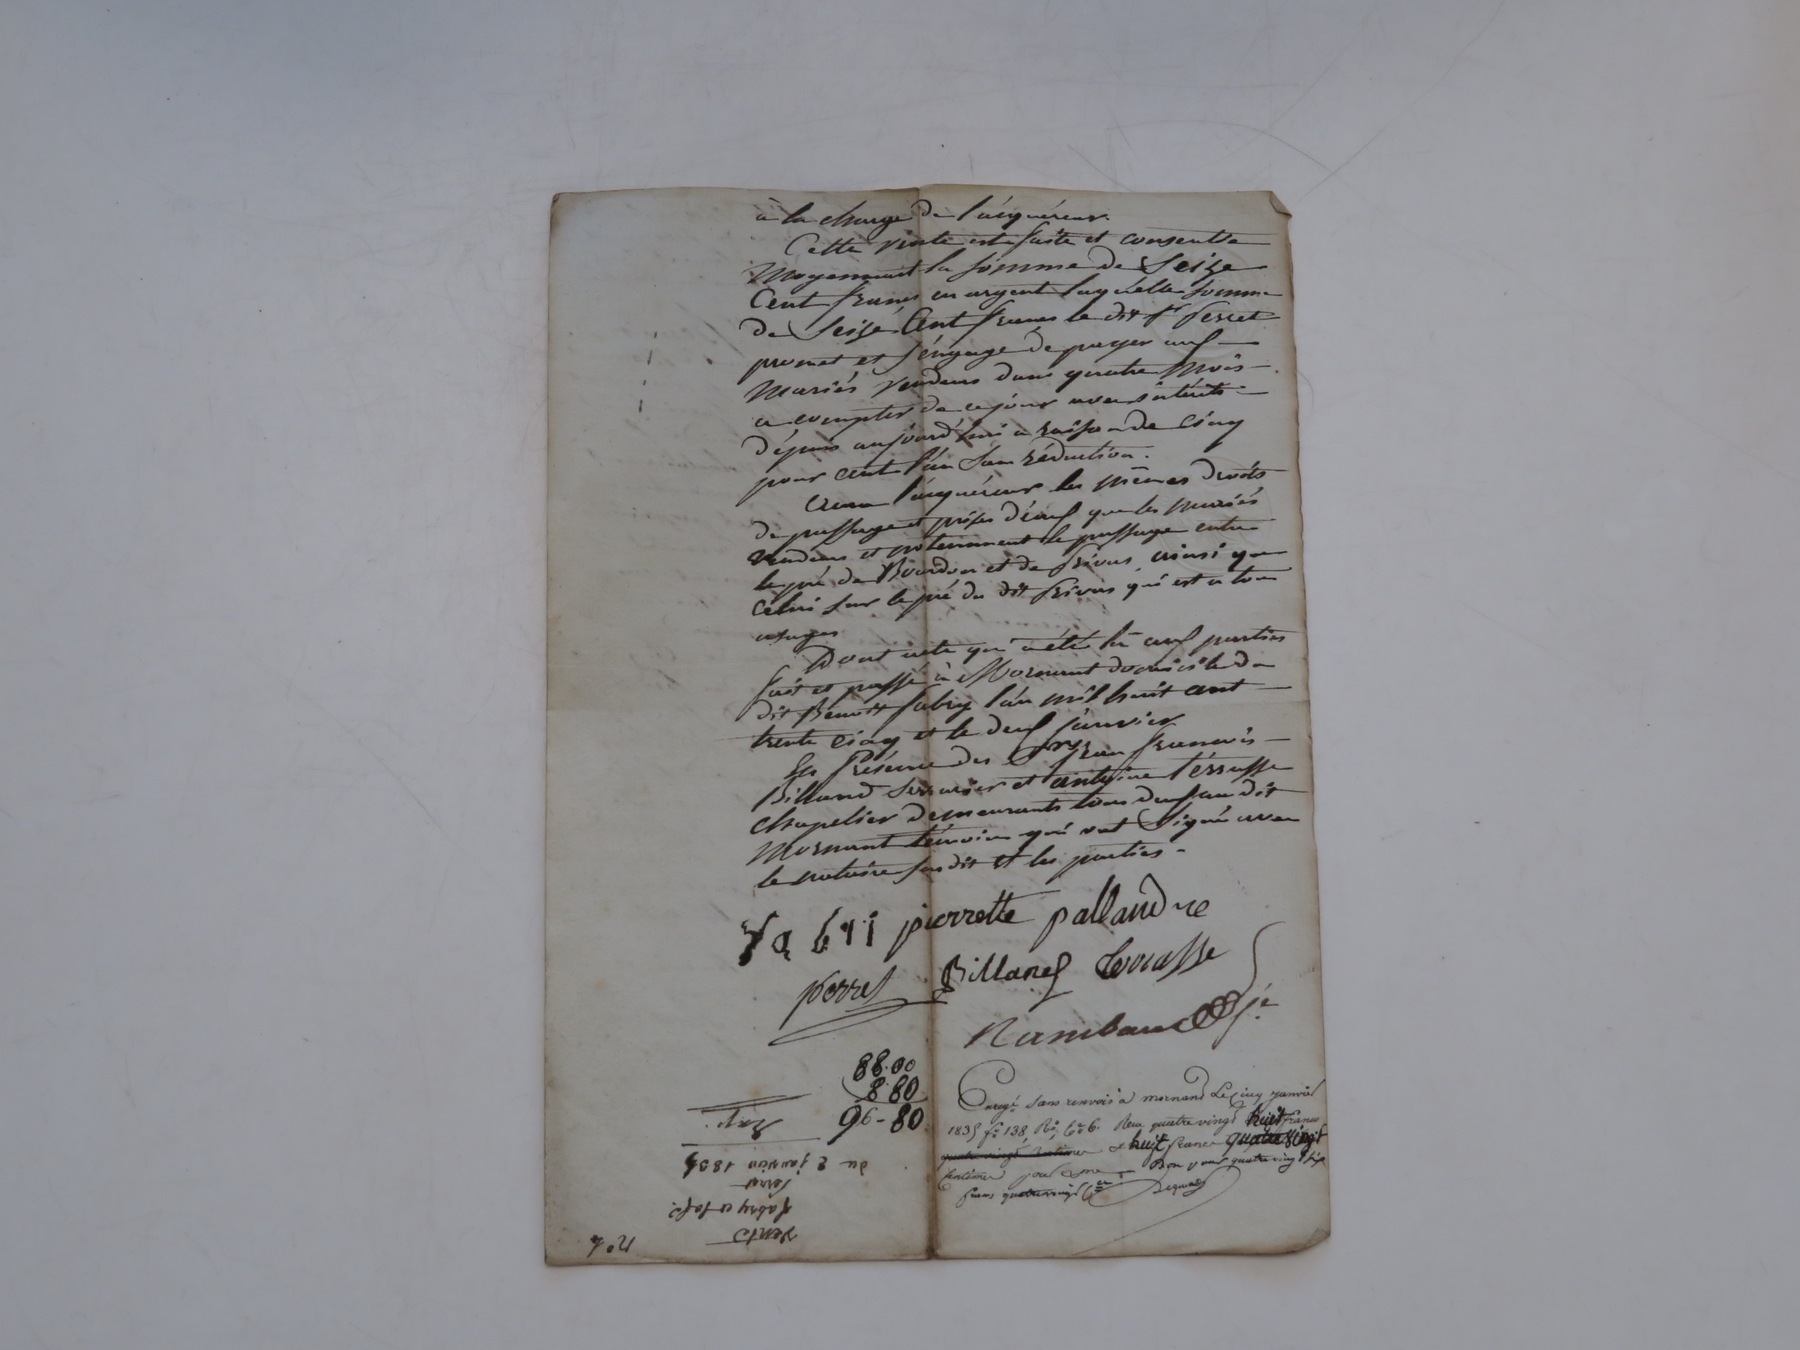 à la charge de l'acquéreur.
Cette vente est faite et consentie
Moyennant la somme de Seize
Cent francs en argent laquelle somme
de Seize Cent francs le dit Sr perret
promet et s'engage de payer aux
Mariés vendeurs dans quatre Mois
a compter de ce jour avec intérêts
depuis aujourd'hui a raison de Cinq
pour cent l'an Sans réduction.
aura l'acquéreur les mêmes droits
de passage et prises d'eaux que les mariés
vendeurs et notamment le passage entre
le pré de Bourdon et de ainsi que
Celui Sur le pré du dit qui est a tous
usages
Dont acte qui a été lu aux parties
fait et passé à Mornant domicile du
dit Benoît fabry l'an mil huit cent
trente cinq et le deux janvier
En Présence des Srs Jean francois
Billand Serrurier et antoine térrasse
Chapelier demeurants tous deux au dit
Mornant témoins qui ont Signé avec
le notaire susdit et les parties.
fabri pierrette pallandre
perret Billand terrasse
Rambaud jne
88.00
8 80
96-80
Enregé Sans renvois à mornand Le Cinq janvier
1835 fo 138, Ro, Ces 6. Reçu quatre vingt huit francs
quatre vingt centimes & huit francs quatre vingt
centimes pour Bon pour quatre vingt six
francs quatrevingt
Vente
fabry et
perret
du 2 janvier 1835
no 4